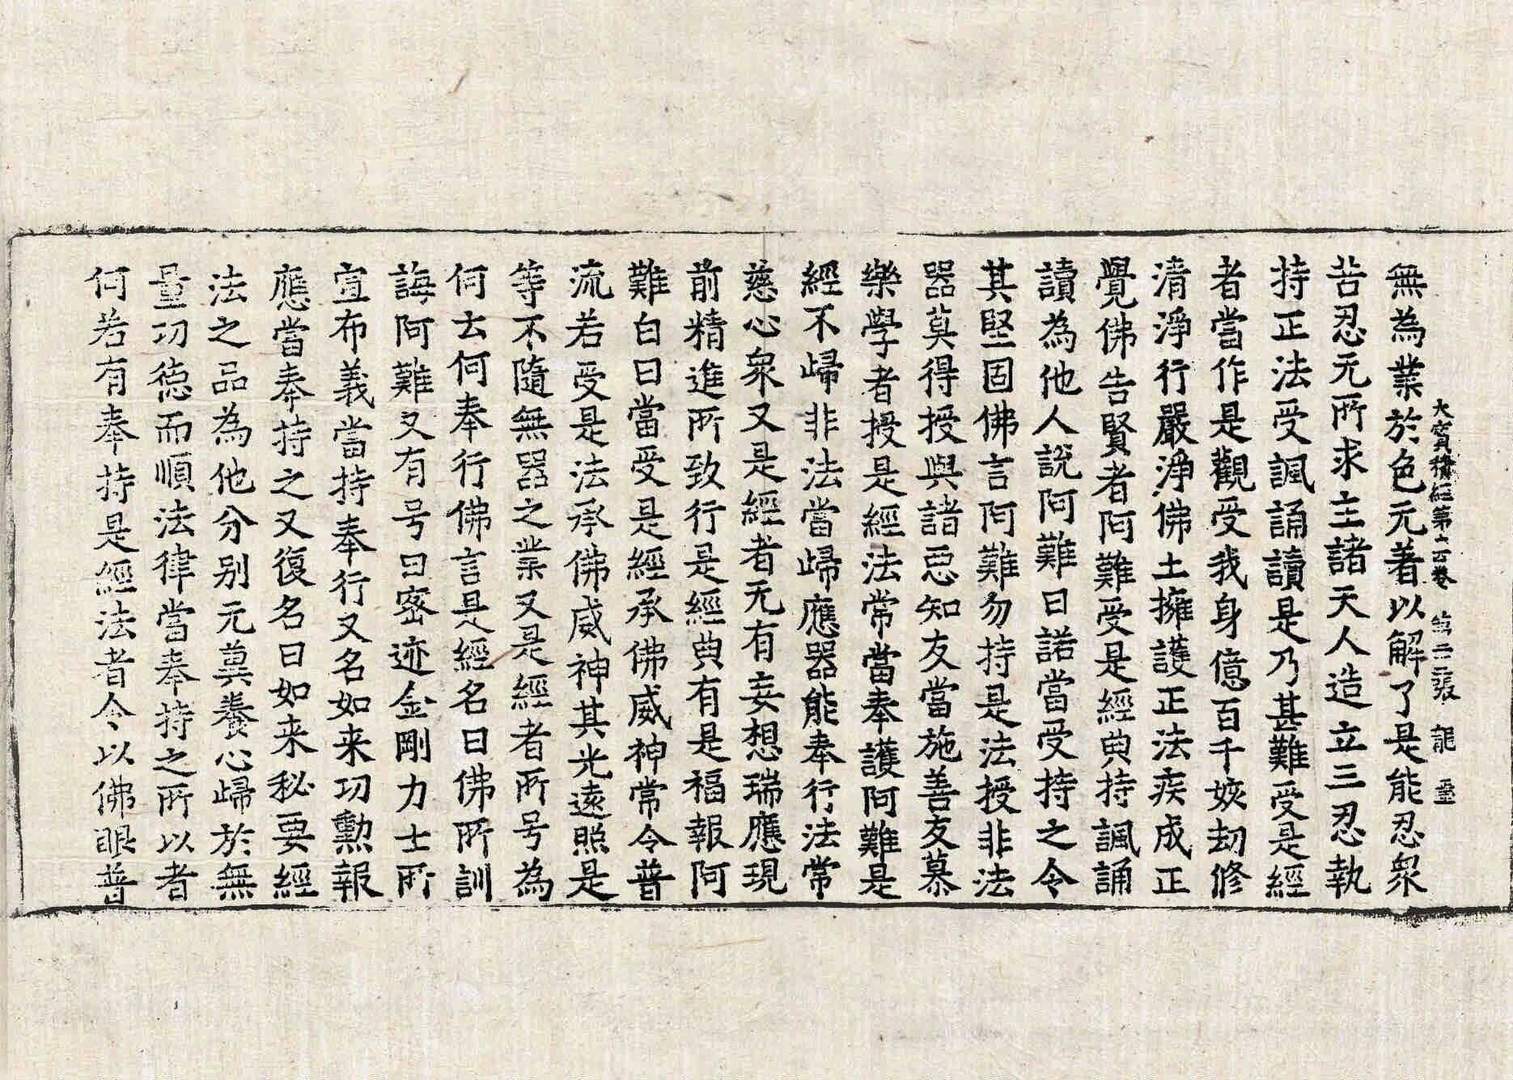 大寳積經第十四卷 第二二張 龍
無為業於色元著以解了是能忍衆
苦忍元所求主諸天人造立三忍執
持正法受諷誦讀是乃甚難受是經
者當作是觀受我身億百千姟劫修
清淨行嚴淨佛土擁護正法疾成正
覺佛告賢者阿難受是經典持諷誦
讀為他人說阿難曰諾當受持之令
其堅固佛言阿難勿持是法授非法
器莫得授與諸惡知友當施善友慕
樂學者授是經法常當奉護阿難是
經不歸非法當歸應器能奉行法常
慈心衆又是經者无有妄想瑞應現
前精進所致行是經典有是福報阿
難白曰當受是經承佛威神常令普
流若受是法承佛威神其光遠照是
等不隨無器之業又是經者所号為
何云何奉行佛言是經名曰佛所訓
誨阿難又有号曰密迹金剛力士所
宣布義當持奉行又名如来功勳報
應當奉持之又復名曰如来秘要經
法之品為他分别元蓂養心歸於無
量功德而順法律當奉持之所以者
何若有奉持是經法者令以佛眼普